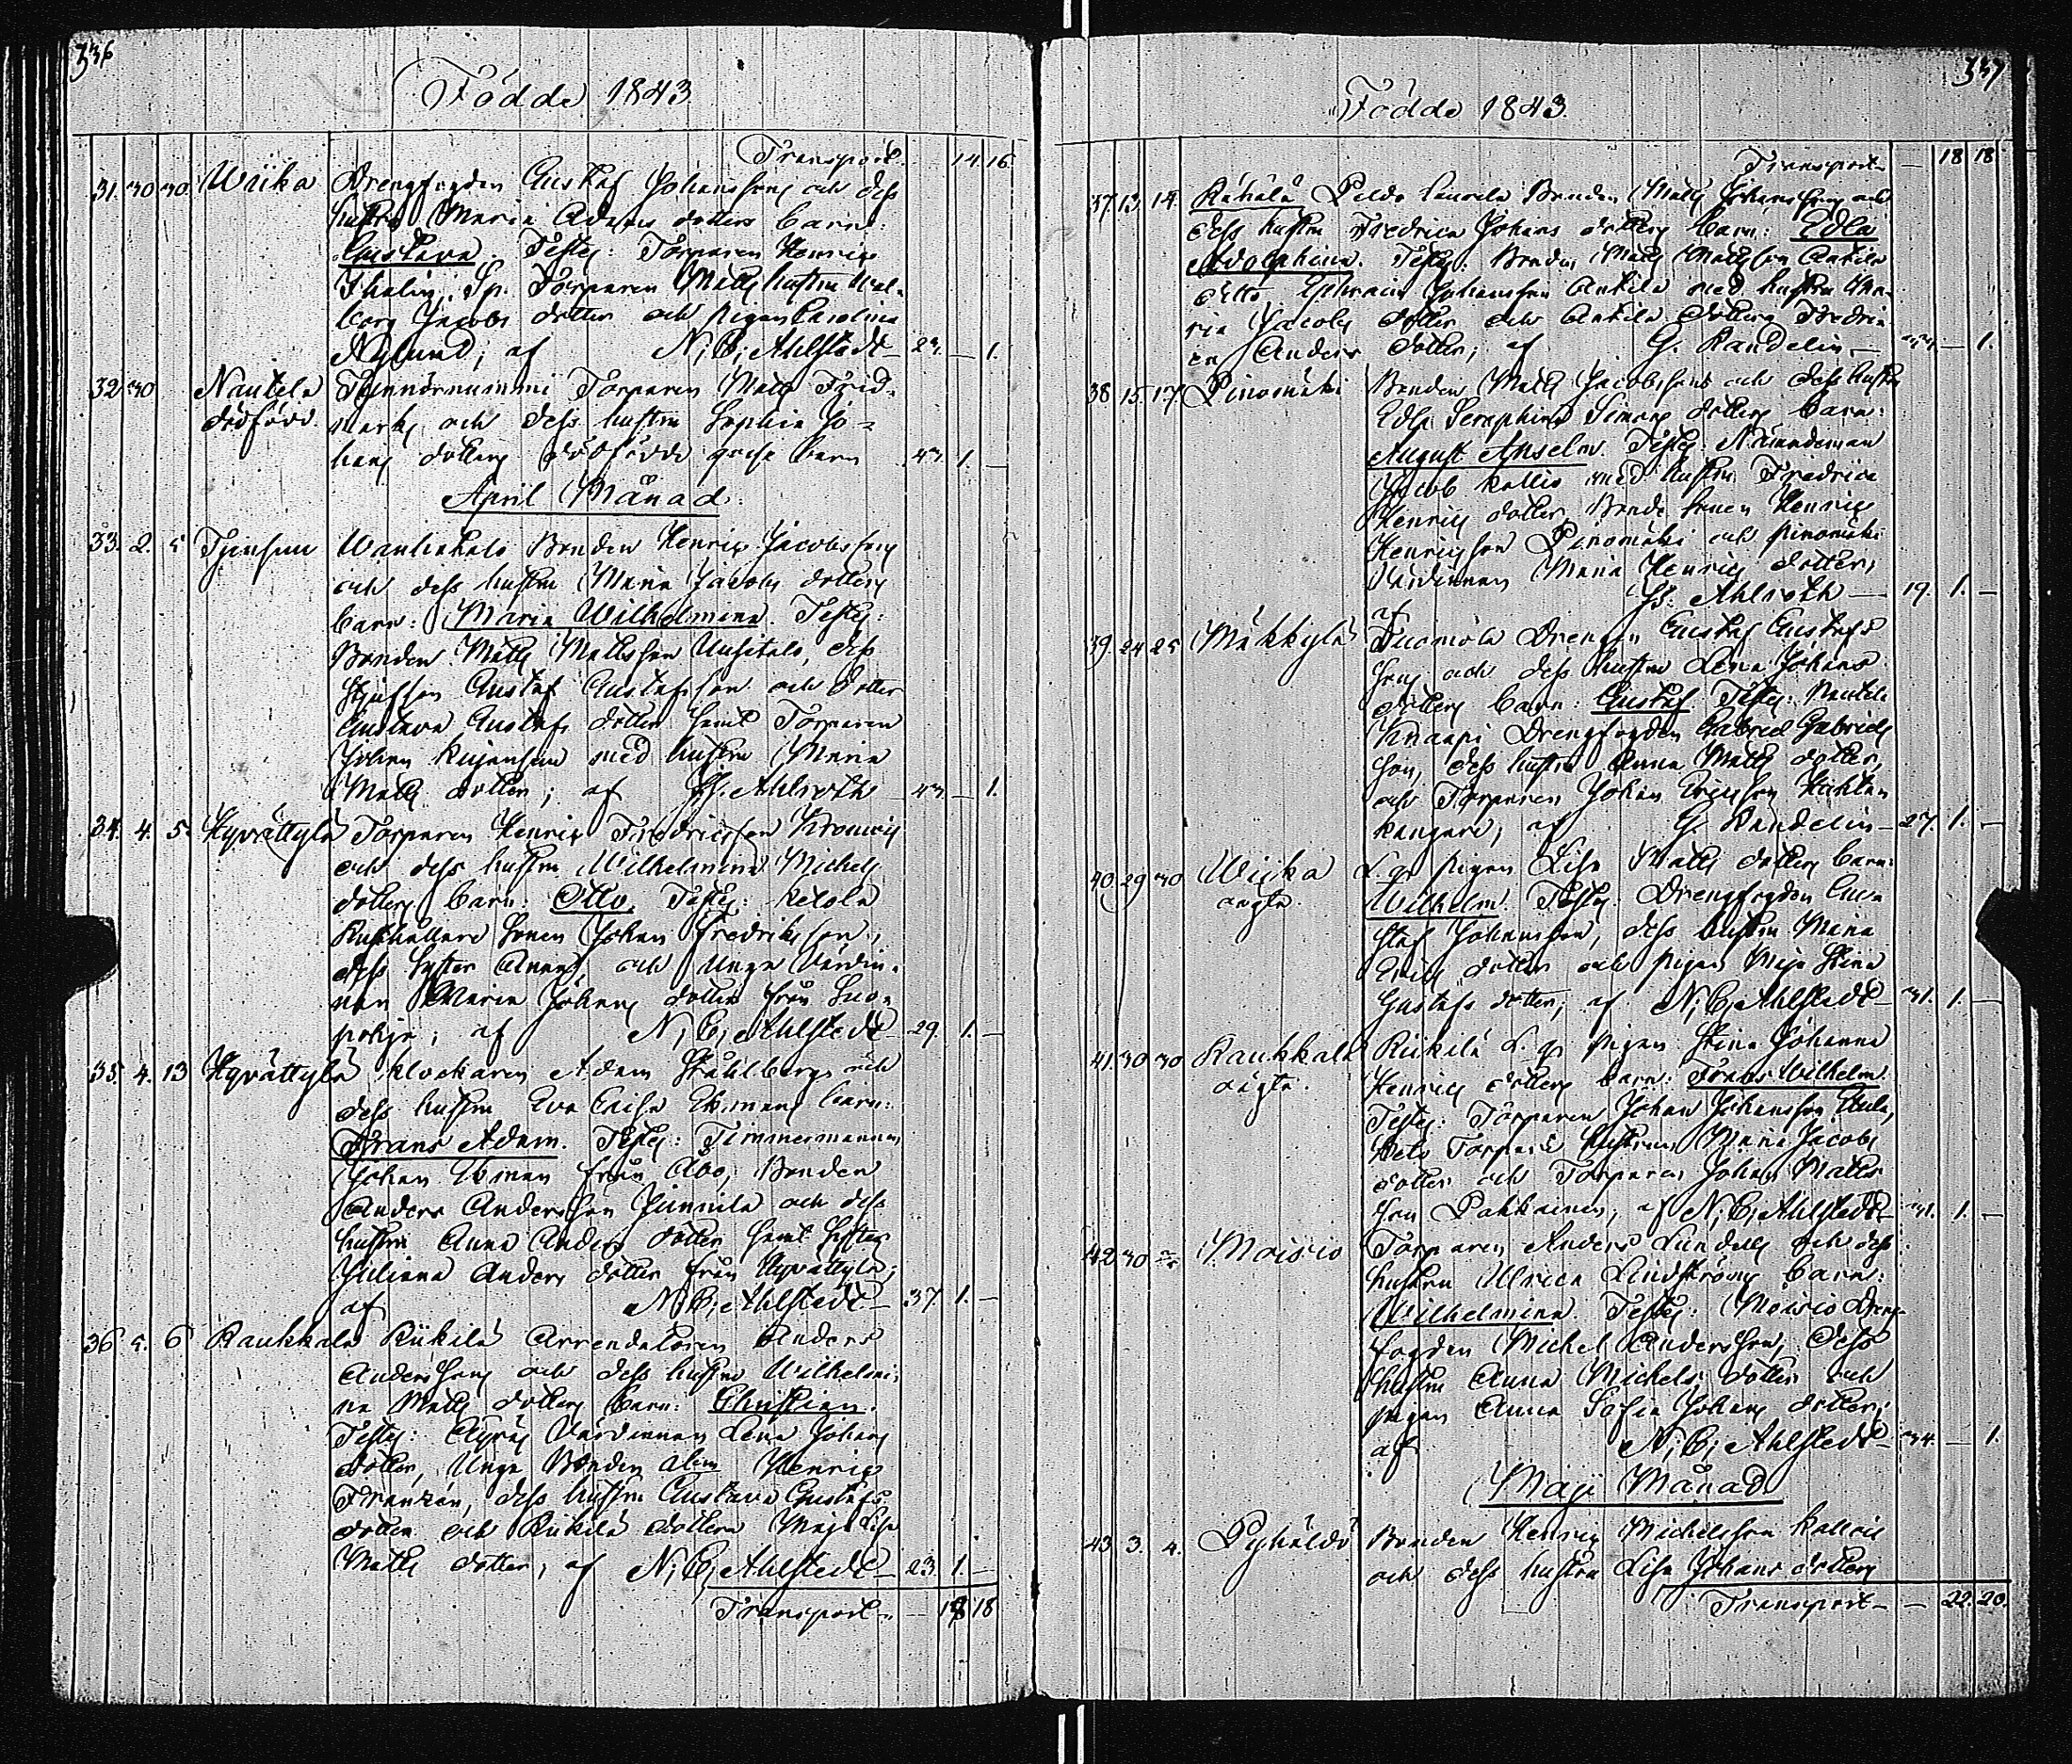 336
Födde 1843
Transport 14 16
31. 30 30. Wiika Drengfogden Gustaf Johanssons och dess
hustru Maria Adams dotters barn:
Gustava. Testes: Torparen Henric
Thalin, Sp. Torparen Matts hustru Wal-
borg Jacobs dotter och pigan Carolina
Nylund; af N. C. Ahlstedt — 1.
32 30 Nautela Matts Frid-
dödfödd marks och dess hustru Sophia Jo-
hans dotters dödfödde gosse barn 43 1. —
April Månad.
33. 2. 5 Bonden Henric Jacobssons
och dess hustru Maria Jacobs dotters
barn: Maria Wilhelmina. Testes:
Bonden Matts Mattsson Uusitalo, dess
Styfson Gustaf Gustafsson och dotter
Gustava Gustafs dotter samt Torparen
Johan med hustru Maria
Matts dotter; af Ahlroth 43 — 1.
34. 4. 5. Hyvättylä Torparen Henric Fredricsson
och dess hustru Wilhelmina Michels
dotters barn: Otto. Testes: Ketola
Rusthållare Sonen Johan Fredriksson,
dess Syster Anna, och Unga Värdin-
nan Maria Johans dotter från Suo-
pohja; af N. C. Ahlstedt 29. 1. —
35. 4. 13 Hyvättylä Klockaren Adam Ståhlbergs och
dess hustru Eva Caisa Ekmans barn:
Frans Adam. Testes: Timmermannen
Johan Ekman från Åbo, Bonden
Anders Andersson Junnila och dess
hustru Anna Anders dotter samt Syster
Juliana Anders dotter från Hyvättylä;
af N. C. Ahlstedt — 37. 1. —
36 5. 6 Raukkala Riikilä Arrendatoren Anders
Anderssons och dess hustru Wilhelmi-
na Matts dotters barn: Christian.
Testes: Äyräs Värdinnan Lena Johans
dotter, Unga Bonden Henric
Franzén, dess hustru Gustava Gustafs
dotter och Riikilä dottern Maja Lisa
Matts dotter; af N. C. Ahlstedt — 23. 1. —
Transport — 18 18
337
Födde 1843.
Transport — 18 18
37. 13. 14. Rähälä Peldo Laurela Bonden Matts Johanssons och
dess hustru Fredrica Johans dotters barn: Edla
Adolphina. Testes: Bonden Matts Mattsson Ankila
ditto Ephraim Johansson Ankila med hustru Ma-
ria Jacobs dotter och Ankila dottern Fredri-
ca Anders dotter; af G. Randelin — 1.
38 15. 17 Pinomäki Bonden Matts Jacobssons och dess hustru
Edla Seraphina Simons dotters barn:
August Anselm. Testes: Nämndeman
Jacob Kallio med hustru Fredrica
Henrics dotter, Bonde Sonen Henric
Henricsson Pinomäki och Pinomäki
Värdinnan Maria Henrics dotter;
af Ahlroth — 19. 1. —
39. 24 25 Mäkkylä Tuomola Drengen Gustaf Gustafs-
sons och dess hustru Lena Johans
dotters barn: Gustaf. Testes: Nautela
Knaapi Drengfogden Gabriel Gabriels-
son, dess hustru Anna Matts dotter,
och Torparen Johan Ericsson
kangare; af G. Randelin — 27. 1. —
40. 29 30 Wiika L. qs pigan Lisa Matts dotters barn:
oägta. Wilhelm. Testes: Drengfogden Gus-
taf Johansson, dess hustru Maria
Erics dotter och pigan Maja Stina
Gustafs dotter; af N. C. Ahlstedt — 31. 1. —
41. 30 30 Raukkala Riikilä L. qs pigan Stina Johanna
oägta. Henrics dotters barn: Frans Wilhelm.
Testes: Torparen Johan Johansson
Torpare hustrun Maria Jacobs
dotter och Torparen Johan Matts-
son Pakkainen; af N. C. Ahlstedt 31. 1. —
42 30 Moisio Torparen Anders Lundells och dess
hustru Ulrica Lindströms barn:
Wilhelmina. Testes: Moisio Dreng-
fogden Michel Andersson, dess
hustru Anna Michels dotter och
pigan Anna Sofia Johans dotter;
af N. C. Ahlstedt — 34. — 1.
Maji Månad
43 3. 4. Pyhältö Bonden Henric Michelsson
och dess hustru Lisa Johans dotters
Transport — 22. 20.